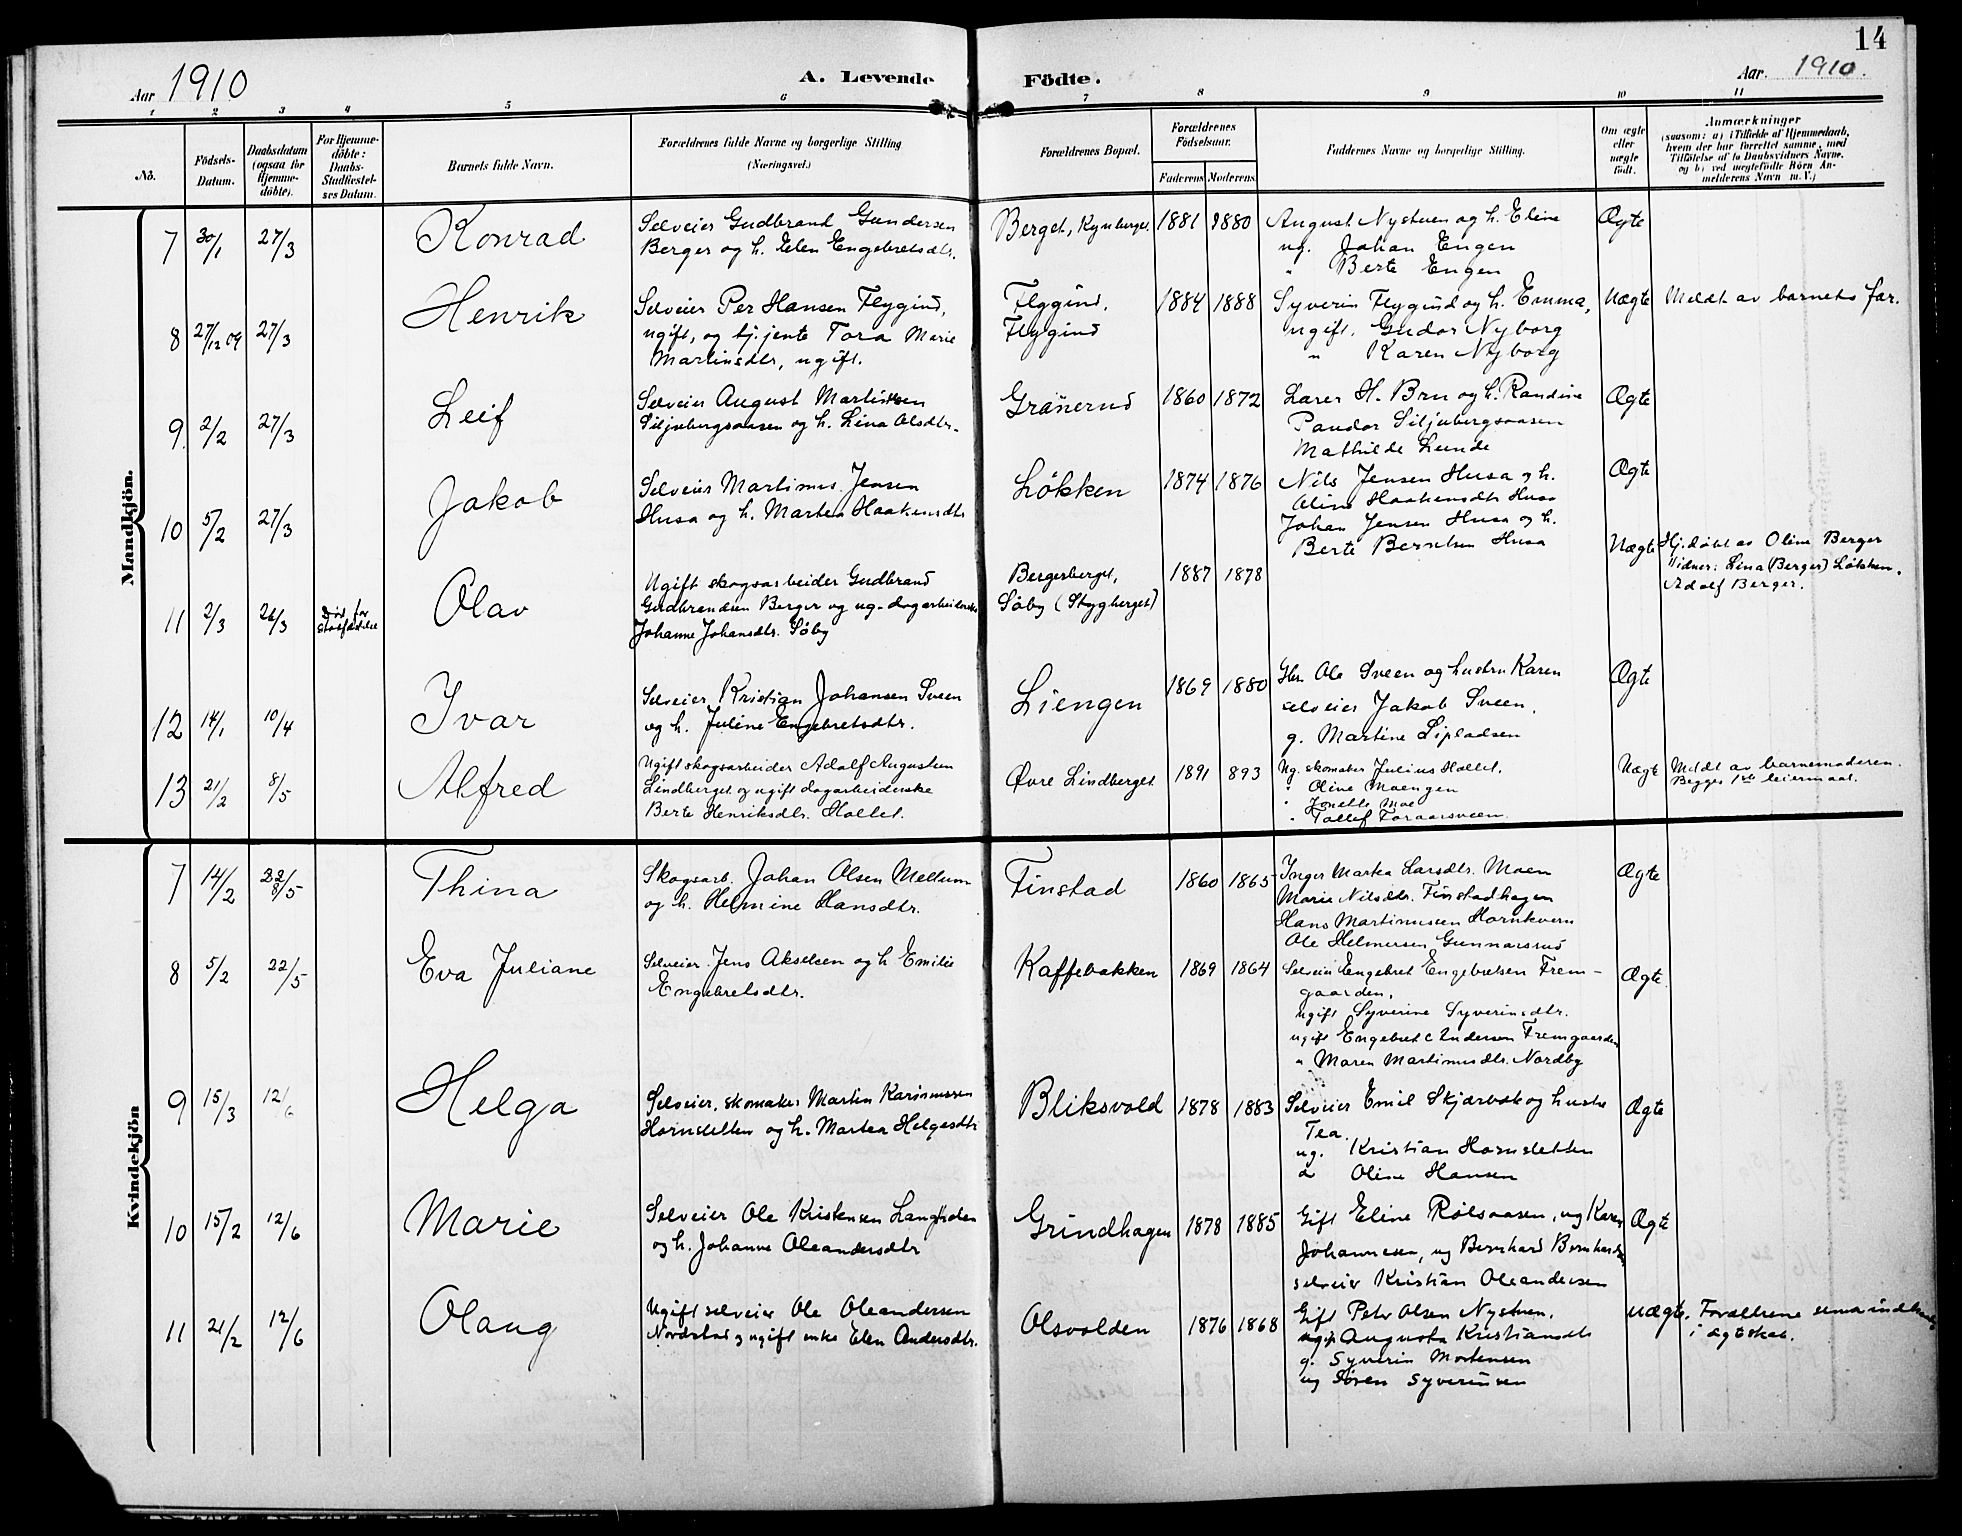 14
Aar 1910
A. Levende Födte.
Aar. 1910.
1 2 3 4 5 6 7 8 9 10 11
No.
Födsels-Datum.
Daabsdatum (ogsaa for Hjemme-döbte).
For Hjemme-döbte: Daabs-Stadfæstel-ses Datum.
Barnets fulde Navn.
Forældrenes fulde Navne og borgerlige Stilling
(Næringsvei.)
Forældrenes Bopæl.
Forældrenes Födselsaar.
Faderens Moderens
Faddernes Navne og borgerlige Stilling.
Om ægte eller uægte födt.
Anmærkninger
(saasom: a) i Tilfælde af Hjemmedaab,
hvem der har forrettet samme, med
Tilföielse af to Daabsvidners Navne.
og b) ved uægtefödte Börn An-
melderens Navn m. V.)
Mandkjön.
7 30/1 27/3 Konrad
Selveier Gudbrand Gundersen
Berger og h. Elen Engebretsdtr.
Berget, Kynberget 1881 1880
August Nystuen og h. Eline
ug. Johan Engen
" Berte Engen
Ægte
8 27/12 09 27/3 Henrik
Selveier Per Hansen Flygind,
ugift, og tj.jente Tora Marie
Martinsdtr, ugift.
Flygind,
Flygind
1884 1888
Syverin Flygind og h. Emma,
ugift. Gudor Nyborg
" Karen Nyborg
Uægte
Meldt av barnets far.
9. 2/2 27/3 Leif
Selveier August Martinsen
Siljubergsaasen og h. Lina Olsdtr.
Granerud 1860 1872
Lærer H. Bru og h. Randine
Pandor Siljubergsaasen
Mathilde Lunde
Ægte
10 5/2 27/3 Jakob
Selveier Martinus Jensen
Husa og h. Martea Haakensdtr
Løkken 1874 1876
Nils Jensen Husa og h.
Oline Haakensdtr Husa
Johan Jensen Husa og h.
Berte Berntsen Husa
Ægte
11 2/3 26/3 Død før stadfæstelse
Olav
Ugift skogsarbeider Gudbrand
Gudbrandsen Berger og ug. dagarbeiderske
Johanne Johansdtr. Søby
Bergerberget,
Søby (Stygberget)
1887 1878
Uægte
Hj.døbt av Oline Berger
Vidner: Lina (Berger) Løkken.
Adolf Berger.
12 14/1 10/4 Ivar
Selveier Kristian Johansen Sveen
og h. Juline Engebretsdtr.
Liengen 1869 1880
Ole Sveen og hustru Karen
selveier Jakob Sveen,
g. Martine Sipladsen
Ægte
13 21/2 8/5 Alfred
Ugift skogsarbeider Adolf Augustsen
Lindberget og ugift dagarbeiderske
Berte Henriksdtr. Holtet.
Øvre Lindberget 1891 893
Ug. skomaker Julius Holtet.
" Oline Moengen
" Jonette Moe
" Tollef Foraarsveen.
Uægte
Meldt av barnemoderen.
Begges 1ste leiermaal.
Kvindekjön
7 14/2 22/5 Thina
Skogsarb. Johan Olsen Mellum
og h. Helmine Hansdtr.
Finstad 1860 1865
Inger Martea Larsdtr. Moen
Marie Nilsdtr. Finstadhagen
Hans Martinussen Hornkvern
Ole Helmersen Gunnarsrud
Ægte
8 5/2 22/5 Eva Juliane
Selveier Jens Akselsen og h Emilie
Engebretsdtr.
Kaffebakken 1869 1864
Selveier Engebret Engebretsen Frem-
gaarden,
ugift Syverine Syverinsdtr.
ugift Engebret Andersen Fremgaarden
" Maren Martinusdtr. Nordby
Ægte
9 15/3 12/6 Helga
Selveier, skomaker Martin Karinussen
Hornsletten og h. Martea Helgesdtr
Bliksvold 1878 1883
Selveier Emil Skjærbæk og hustru
Tea.
ug. Kristian Hornsletten
" Oline Hansen
Ægte
10 15/2 12/6 Marie
Selveier Ole Kristensen Langholen
og h. Johanne Oleandersdtr
Grindhagen 1878 1885
Gift Eline Rølsaasen, ug Karen
Johannesen, ug Bernhard Bernhardsen
selveier Kristian Oleandersen
Ægte
11 21/2 12/6 Olaug
Ugift selveier Ole Oleandersen
Nordstad og ugift enke Elen Andersdtr.
Olsvolden 1876 1868
Gift Petr Olsen Nystuen.
ugift Augusta Kristiansdtr
g. Syverin Mortensen
ug Søren Syverinsen
uægte.
Forældrene senere indtraadt
i ægteskab.